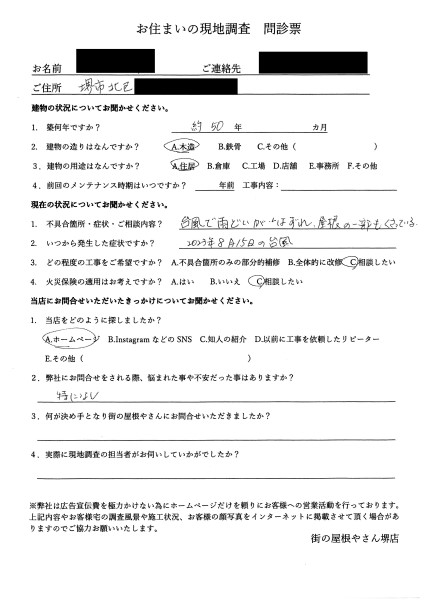 お住まいの現地調査 問診票
お名前 ご連絡先
ご住所 堺市北区
建物の状況についてお聞かせください。
1. 築何年ですか? 約50 年 カ月
2. 建物の造りはなんですか? A.木造 B.鉄骨 C.その他( )
3. 建物の用途はなんですか? A.住居 B.倉庫 C.工場 D.店舗 E.事務所 F.その他
4. 前回のメンテナンス時期はいつですか? 年前 工事内容:
現在の状況についてお聞かせください。
1. 不具合箇所・症状・ご相談内容? 台風で雨どいがはずれ、屋根の一部もくずれている.
2. いつから発生した症状ですか? 2023年8月15日の台風
3. どの程度の工事をご希望ですか? A.不具合箇所のみの部分的補修 B.全体的に改修 C相談したい
4. 火災保険の適用はお考えですか? A.はい B.いいえ C相談したい
当店にお問合せいただいたきっかけについてお聞かせください。
1. 当店をどのように探しましたか?
A.ホームページ B.Instagram などの SNS C.知人の紹介 D.以前に工事を依頼したリピーター
E.その他( )
2. 弊社にお問合せをされる際、悩まれた事や不安だった事はありますか?
特になし
3. 何が決め手となり街の屋根やさんにお問合せいただきましたか?
4. 実際に現地調査の担当者がお伺いしていかがでしたか?
※弊社は広告宣伝費を極力かけない為にホームページだけを頼りにお客様への営業活動を行っております。
上記内容やお客様宅の調査風景や施工状況、お客様の顔写真をインターネットに掲載させて頂く場合があ
りますのでご協力お願いいたします。
街の屋根やさん堺店